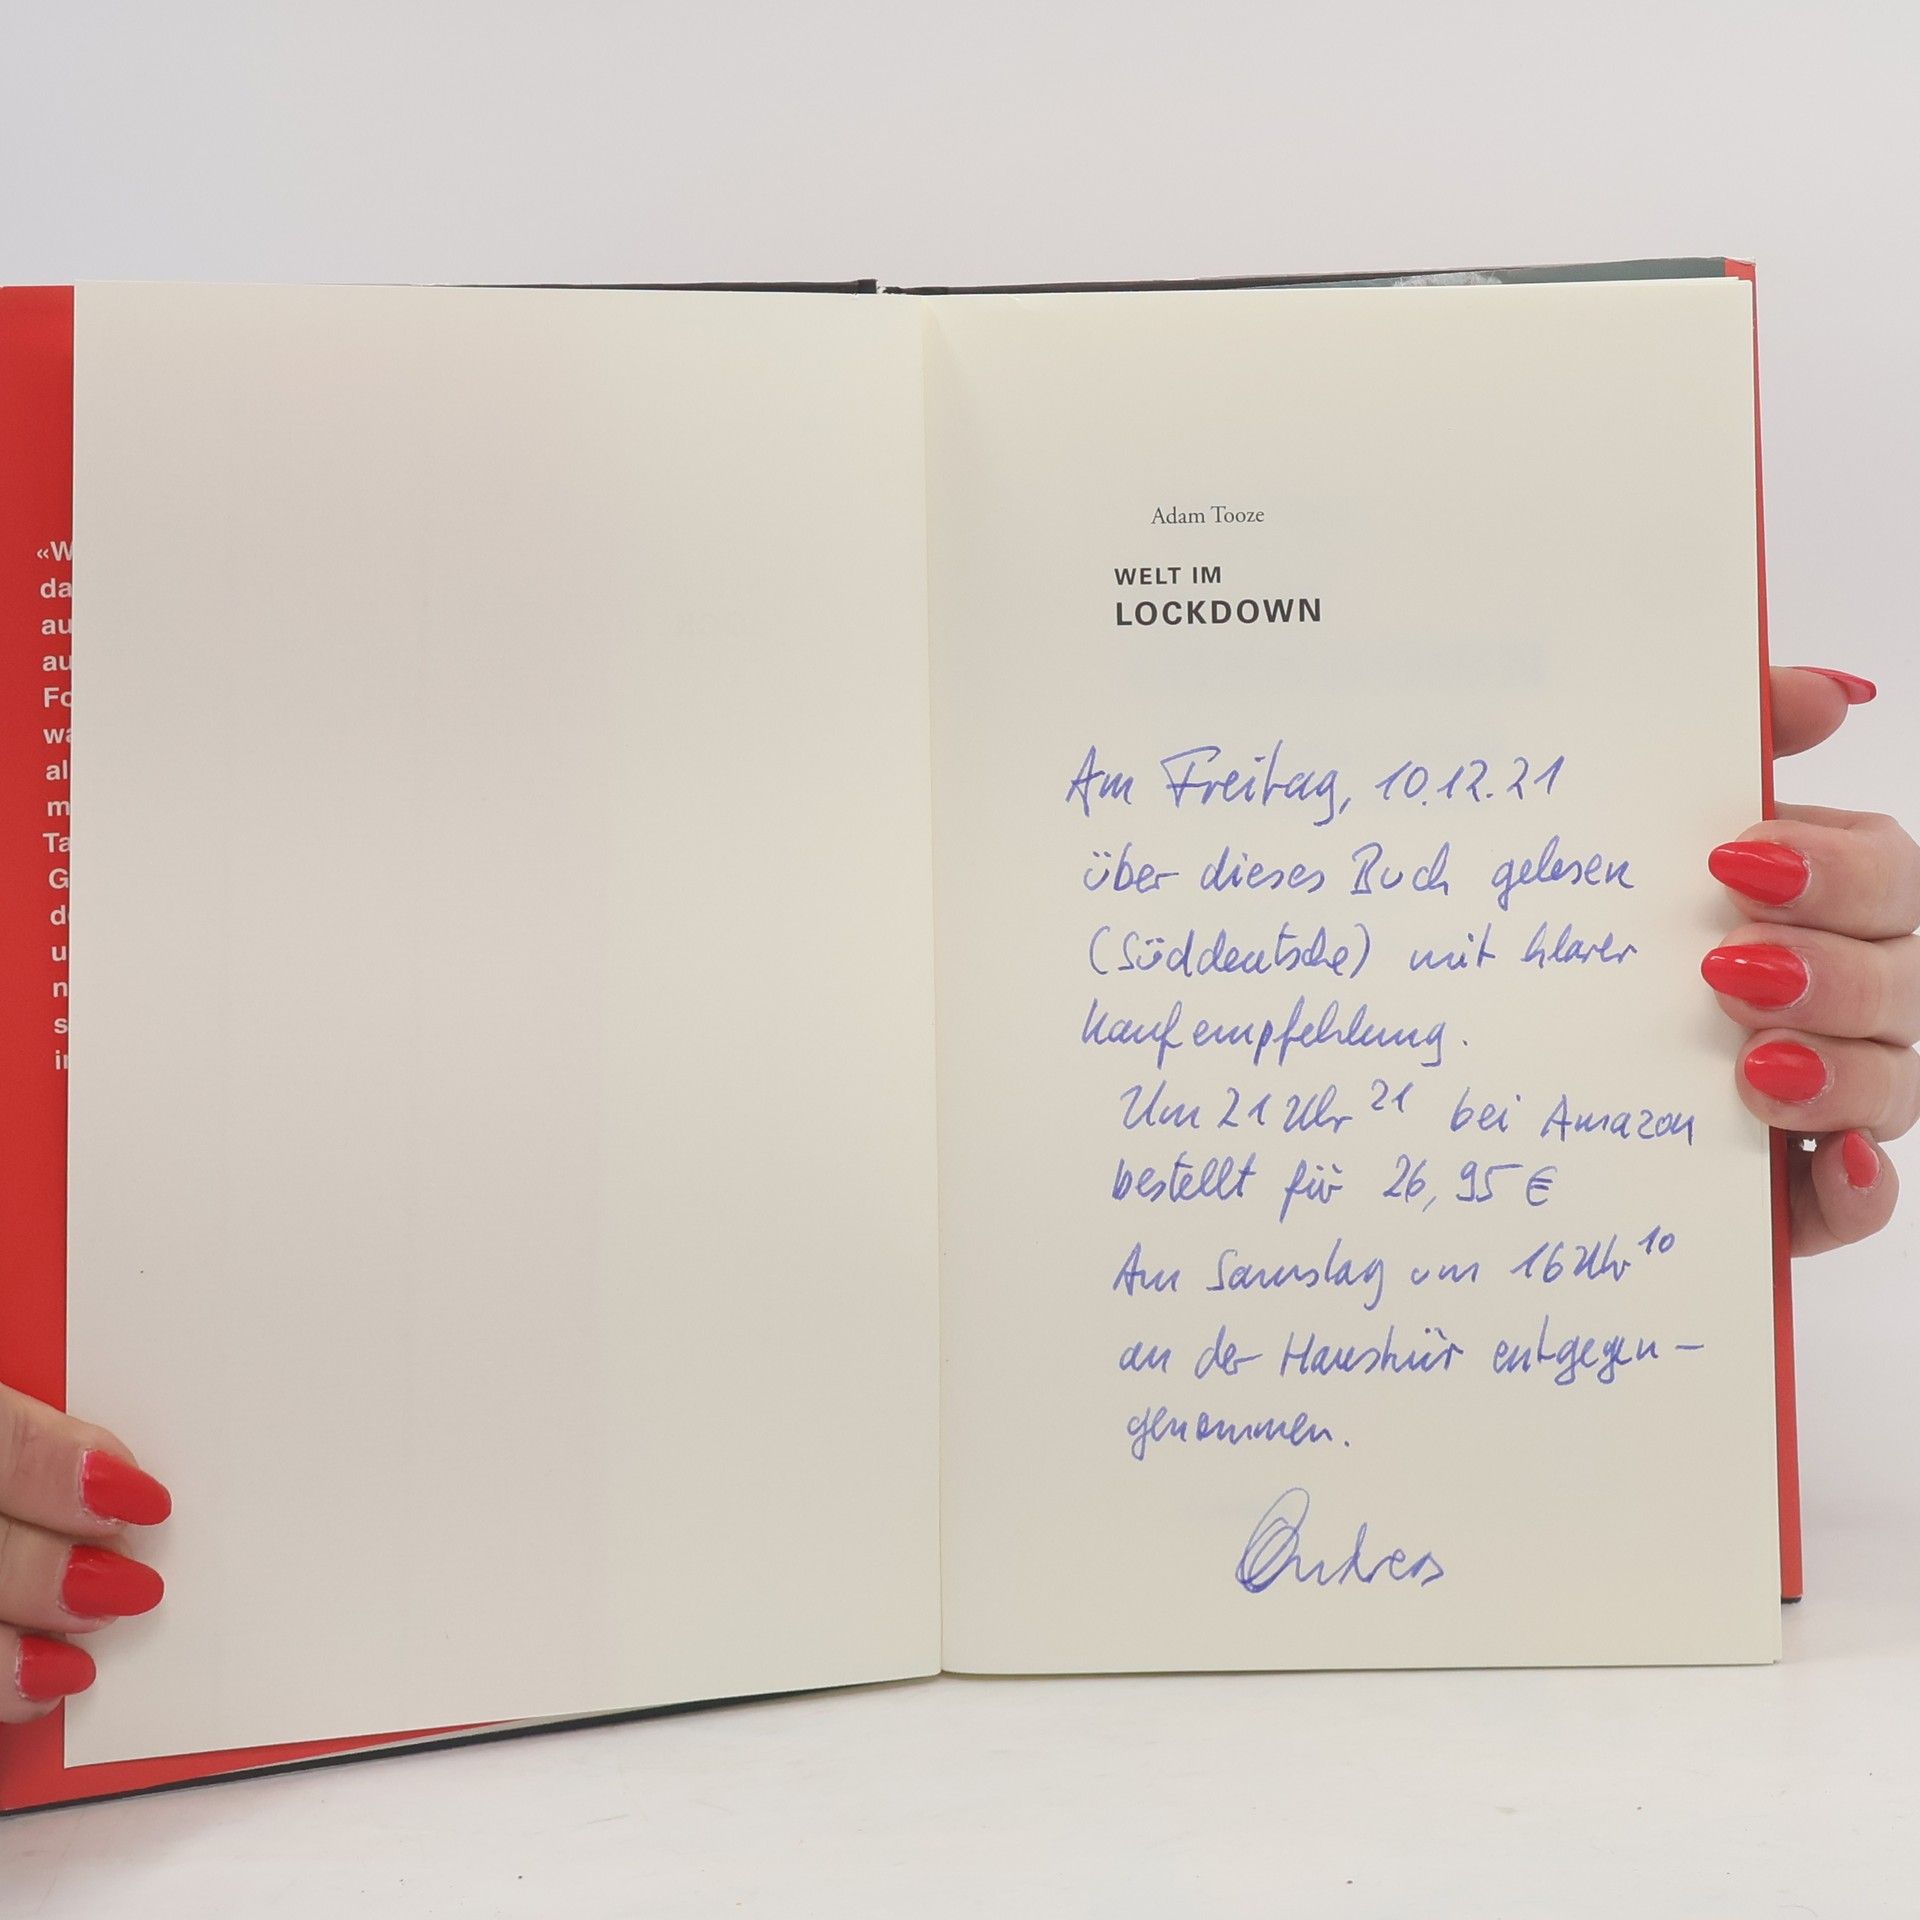 «W
da
au
au
Fo
wa
al
m
Ta
G
de
u
n
s
in
Adam Tooze
WELT IM
LOCKDOWN
Am Freitag, 10.12.21
über dieses Buch gelesen
(Süddeutsche) mit klarer
Kaufempfehlung.
Um 21 Uhr 21 bei Amazon
bestellt für 26,95 €
Am Samstag um 16 Uhr 10
an der Haustür entgegen-
genommen.
Andreas